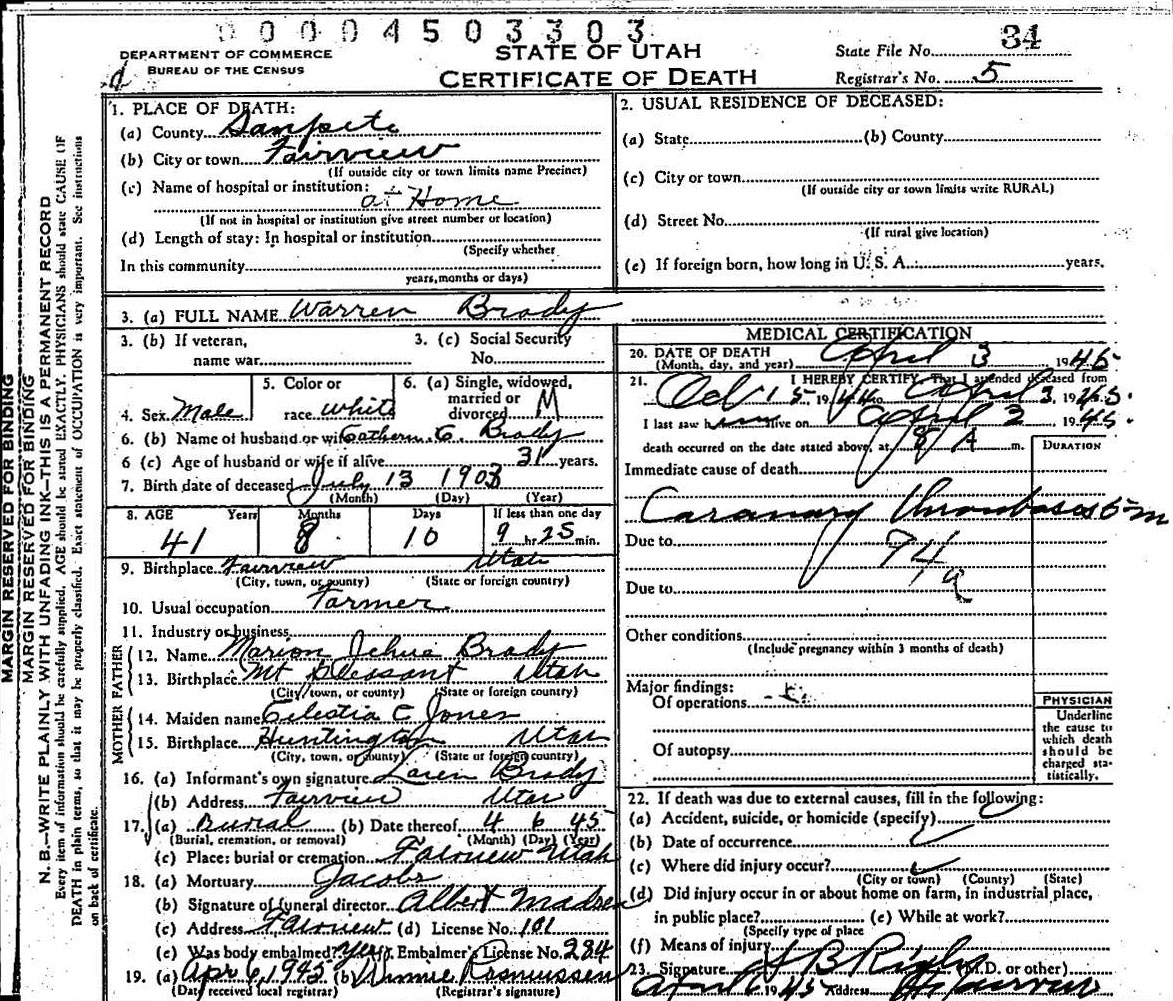 0 0 0 0 4 5 0 3 3 0 3
DEPARTMENT OF COMMERCE
BUREAU OF THE CENSUS
STATE OF UTAH
CERTIFICATE OF DEATH
State File No. 34
Registrar's No. 5
MARGIN RESERVED FOR BINDING
MARGIN RESERVED FOR BINDING
N. B.—WRITE PLAINLY WITH UNFADING INK—THIS IS A PERMANENT RECORD
Every item of information should be carefully supplied. AGE should be stated EXACTLY. PHYSICIANS should state CAUSE OF
DEATH in plain terms, so that it may be properly classified. Exact statement of OCCUPATION is very important. See instructions
on back of certificate.
1. PLACE OF DEATH:
(a) County Sanpete
(b) City or town Fairview
(If outside city or town limits name Precinct)
(c) Name of hospital or institution:
at Home
(If not in hospital or institution give street number or location)
(d) Length of stay: In hospital or institution
(Specify whether
In this community
years, months or days)
2. USUAL RESIDENCE OF DECEASED:
(a) State (b) County
(c) City or town
(If outside city or town limits write RURAL)
(d) Street No.
(If rural give location)
(e) If foreign born, how long in U. S. A. years.
3. (a) FULL NAME Warren Brady
3. (b) If veteran,
name war
3. (c) Social Security
No.
4. Sex Male
5. Color or
race white
6. (a) Single, widowed,
married or
divorced M
6. (b) Name of husband or wife C. Brady
6 (c) Age of husband or wife if alive 31 years.
7. Birth date of deceased July 13 1903
(Month) (Day) (Year)
8. AGE Years Months Days If less than one day
41 8 10 9 hr 25 min.
9. Birthplace Fairview Utah
(City, town, or county) (State or foreign country)
10. Usual occupation Farmer
11. Industry or business
FATHER
12. Name Marion Brady
13. Birthplace Mt Pleasant Utah
(City, town, or county) (State or foreign country)
MOTHER
14. Maiden name Celestia C Jones
15. Birthplace Huntington Utah
(City, town, or county) (State or foreign country)
16. (a) Informant's own signature Loren Brady
(b) Address Fairview Utah
17. (a) Burial (b) Date thereof 4 6 45
(Burial, cremation, or removal) (Month) (Day) (Year)
(c) Place: burial or cremation Fairview Utah
18. (a) Mortuary Jacobs
(b) Signature of funeral director Albert Madsen
(c) Address Fairview (d) License No. 101
(e) Was body embalmed? yes Embalmer's License No. 284
19. (a) Apr 6, 1945 (b) Winnie Rasmussen
(Date received local registrar) (Registrar's signature)
MEDICAL CERTIFICATION
20. DATE OF DEATH
(Month, day, and year) April 3 1945
21. I HEREBY CERTIFY, That I attended deceased from
Oct 15, 1944 to April 3, 1945.
I last saw him alive on April 2, 1945.
death occurred on the date stated above, at 8 A m.
DURATION
Immediate cause of death
Caranary Thrombosis 5 m
Due to
94
a
Due to
Other conditions
(Include pregnancy within 3 months of death)
Major findings:
Of operations
Of autopsy
PHYSICIAN
Underline
the cause to
which death
should be
charged sta-
tistically.
22. If death was due to external causes, fill in the following:
(a) Accident, suicide, or homicide (specify)
(b) Date of occurrence
(c) Where did injury occur?
(City or town) (County) (State)
(d) Did injury occur in or about home on farm, in industrial place,
in public place? (e) While at work?
(Specify type of place
(f) Means of injury
23. Signature (M.D. or other)
April 1945 Address Fairview